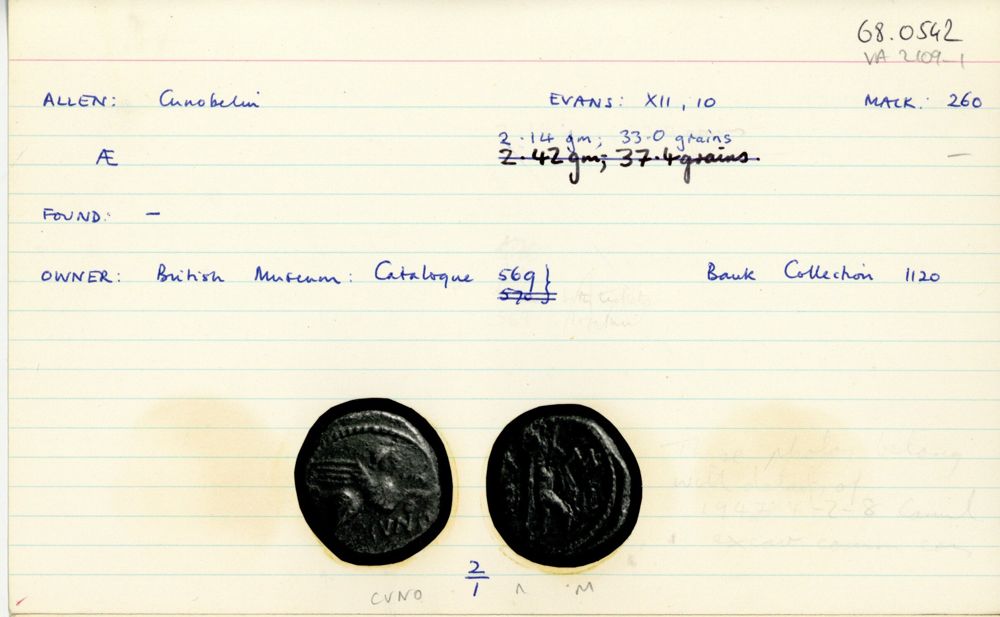 68.0542
VA 2109-1
ALLEN: Cunobelin EVANS: XII, 10 MACK: 260
2.14 gm; 33.0 grains
Æ 2.42 gm; 37.4 grains. —
FOUND: —
OWNER: British Museum: Catalogue 569} Bank Collection 1120
570}
These photos belong
with details of
1947
CVNO
2/1
CVNO Λ M